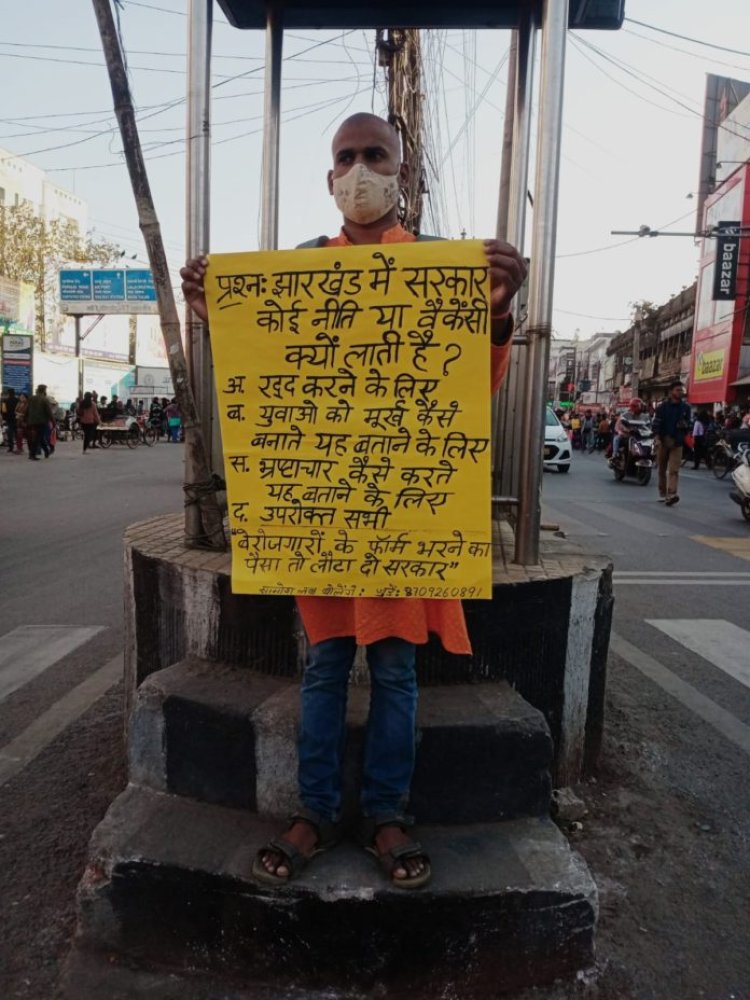 प्रश्न: झारखंड में सरकार
कोई नीति या वैकेंसी
क्यों लाती है ?
अ. रद्द करने के लिए
ब. युवाओ को मूर्ख कैसे
बनाते यह बताने के लिए
स. भ्रष्टाचार कैसे करते
यह बताने के लिए
द. उपरोक्त सभी
"बेरोजगारों के फ़ॉर्म भरने का
पैसा तो लौटा दो सरकार"
8709260891
baazar
baazar